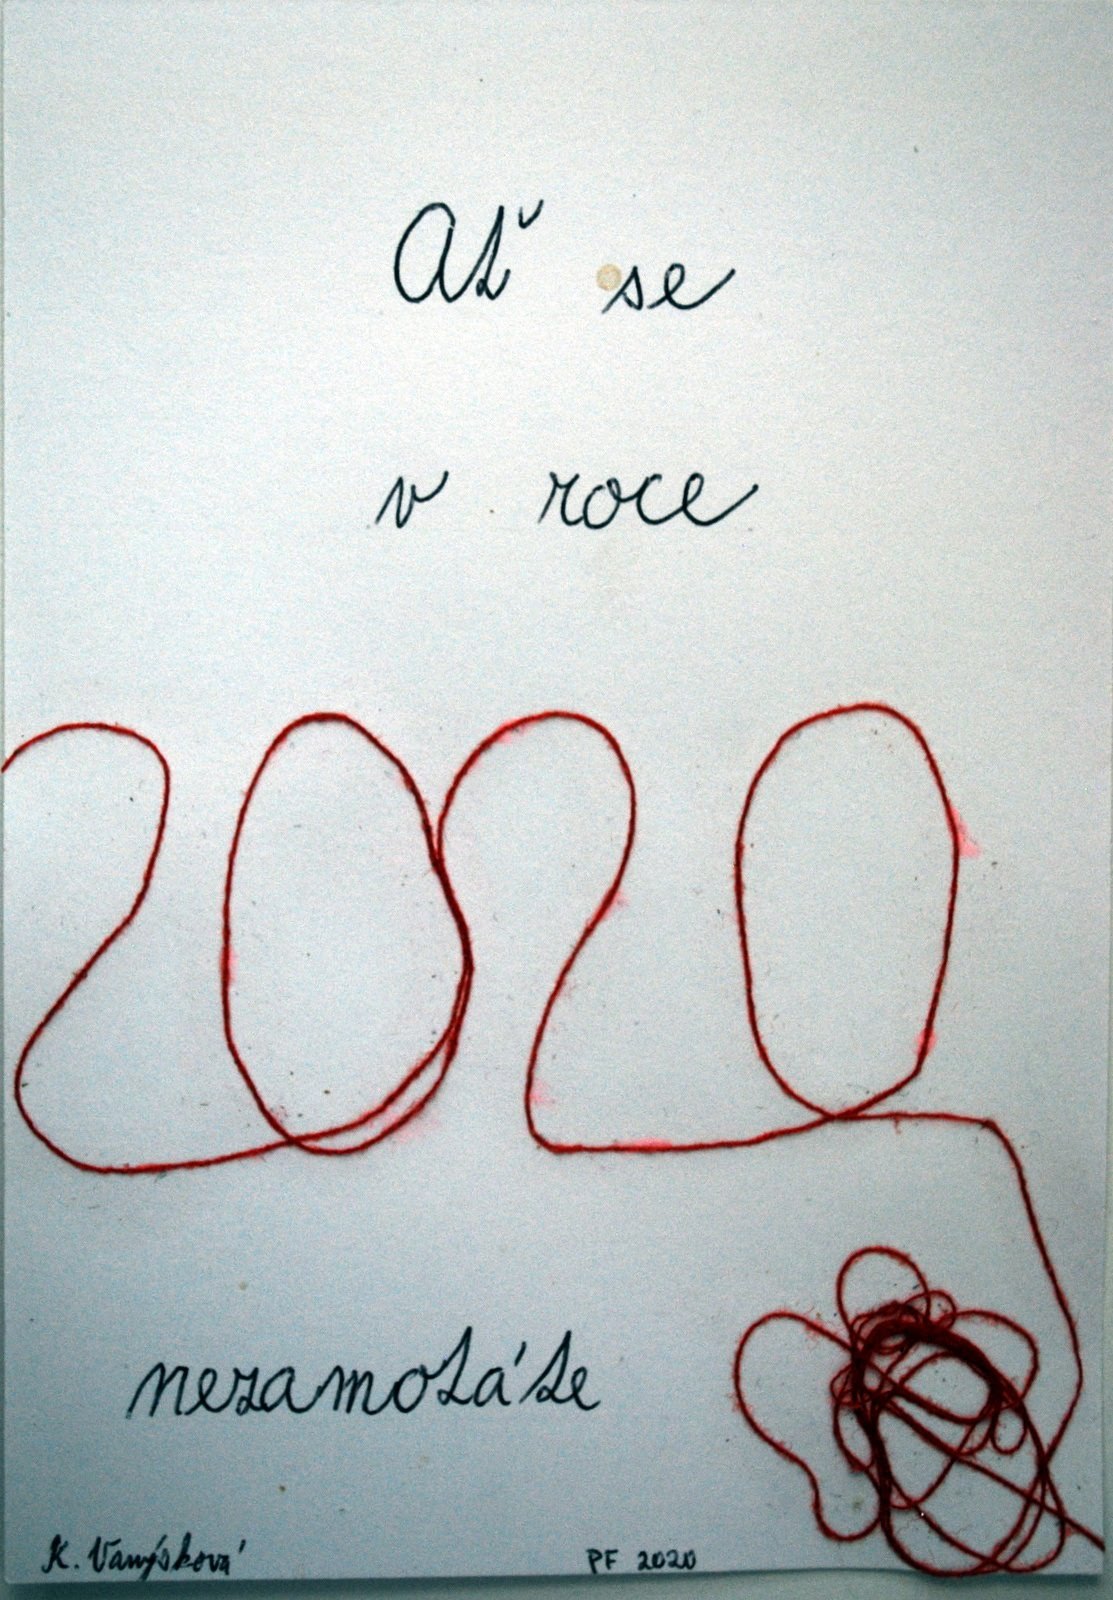 Ať se
v roce
2020
nezamotáte
K. Vanýsková PF 2020